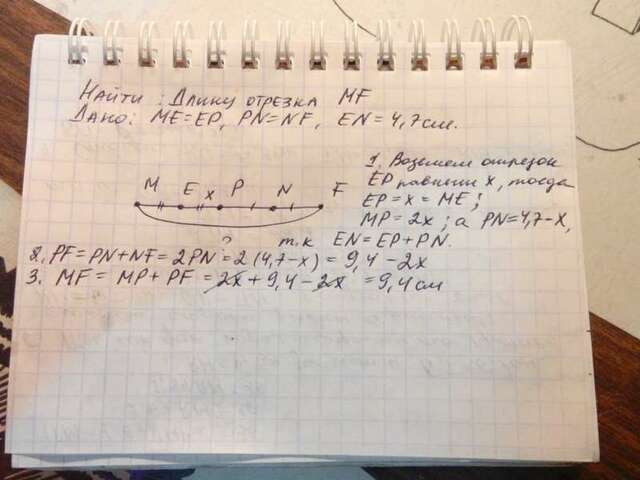 Найти: Длину отрезка MF
Дано: ME=EP, PN=NF, EN=4,7см.
M E x P N F
?
1. Возьмем отрезок
EP равным x, тогда
EP=x=ME;
MP=2x; а PN=4,7-x,
т.к EN=EP+PN.
2. PF=PN+NF=2PN=2(4,7-x)=9,4-2x
3. MF=MP+PF=2x+9,4-2x=9,4см